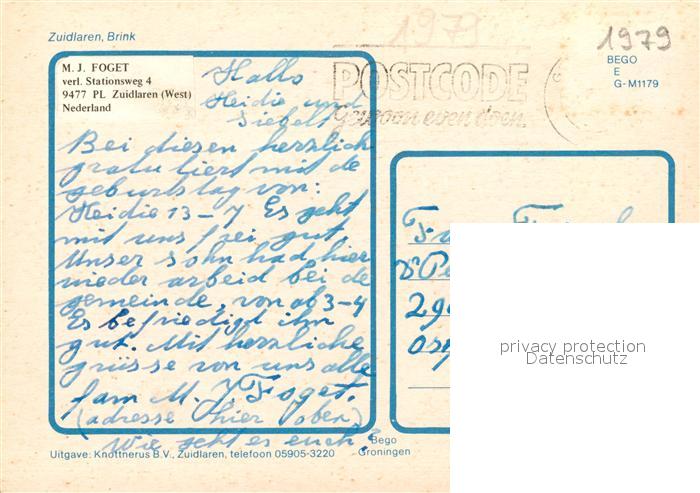 Zuidlaren, Brink
1979
1979
M. J. FOGET
verl. Stationsweg 4
9477 PL Zuidlaren (West)
Nederland
BEGO
E
G-M1179
POSTCODE
gewoon even doen.
Hallo
Heidie und
Siebelt
Bei diesen herzlich
gratuliert mit de
geburtstag von:
Heidie 13-7 Es geht
mit uns sei gut,
Unser sohn had hier
wieder arbeid bei de
gemeinde, von ab 3-4
Es befriedigd ihm
gut. Mit herzliche
grüsse von uns alle
fam M. J. Foget.
(adresse hier oben)
Wie geht es euch?
privacy protection
Datenschutz
Bego
Groningen
Uitgave: Knottnerus B.V., Zuidlaren, telefoon 05905-3220